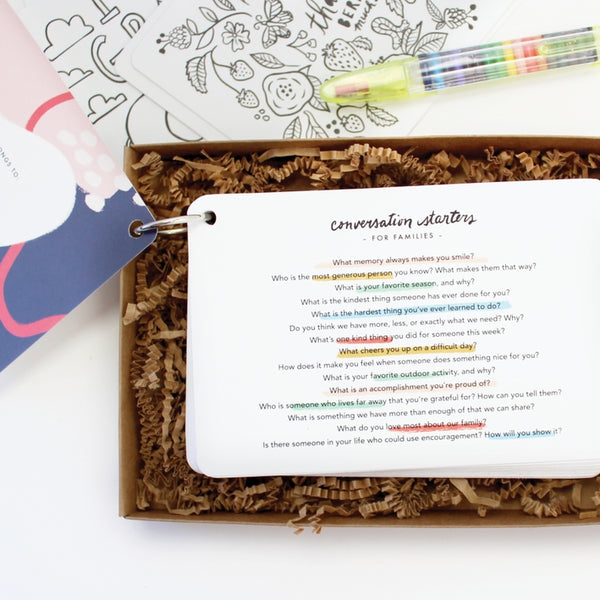 tha
BER
LONGS TO:
conversation starters
- FOR FAMILIES -
What memory always makes you smile?
Who is the most generous person you know? What makes them that way?
What is your favorite season, and why?
What is the kindest thing someone has ever done for you?
What is the hardest thing you've ever learned to do?
Do you think we have more, less, or exactly what we need? Why?
What's one kind thing you did for someone this week?
What cheers you up on a difficult day?
How does it make you feel when someone does something nice for you?
What is your favorite outdoor activity, and why?
What is an accomplishment you're proud of?
Who is someone who lives far away that you're grateful for? How can you tell them?
What is something we have more than enough of that we can share?
What do you love most about our family?
Is there someone in your life who could use encouragement? How will you show it?